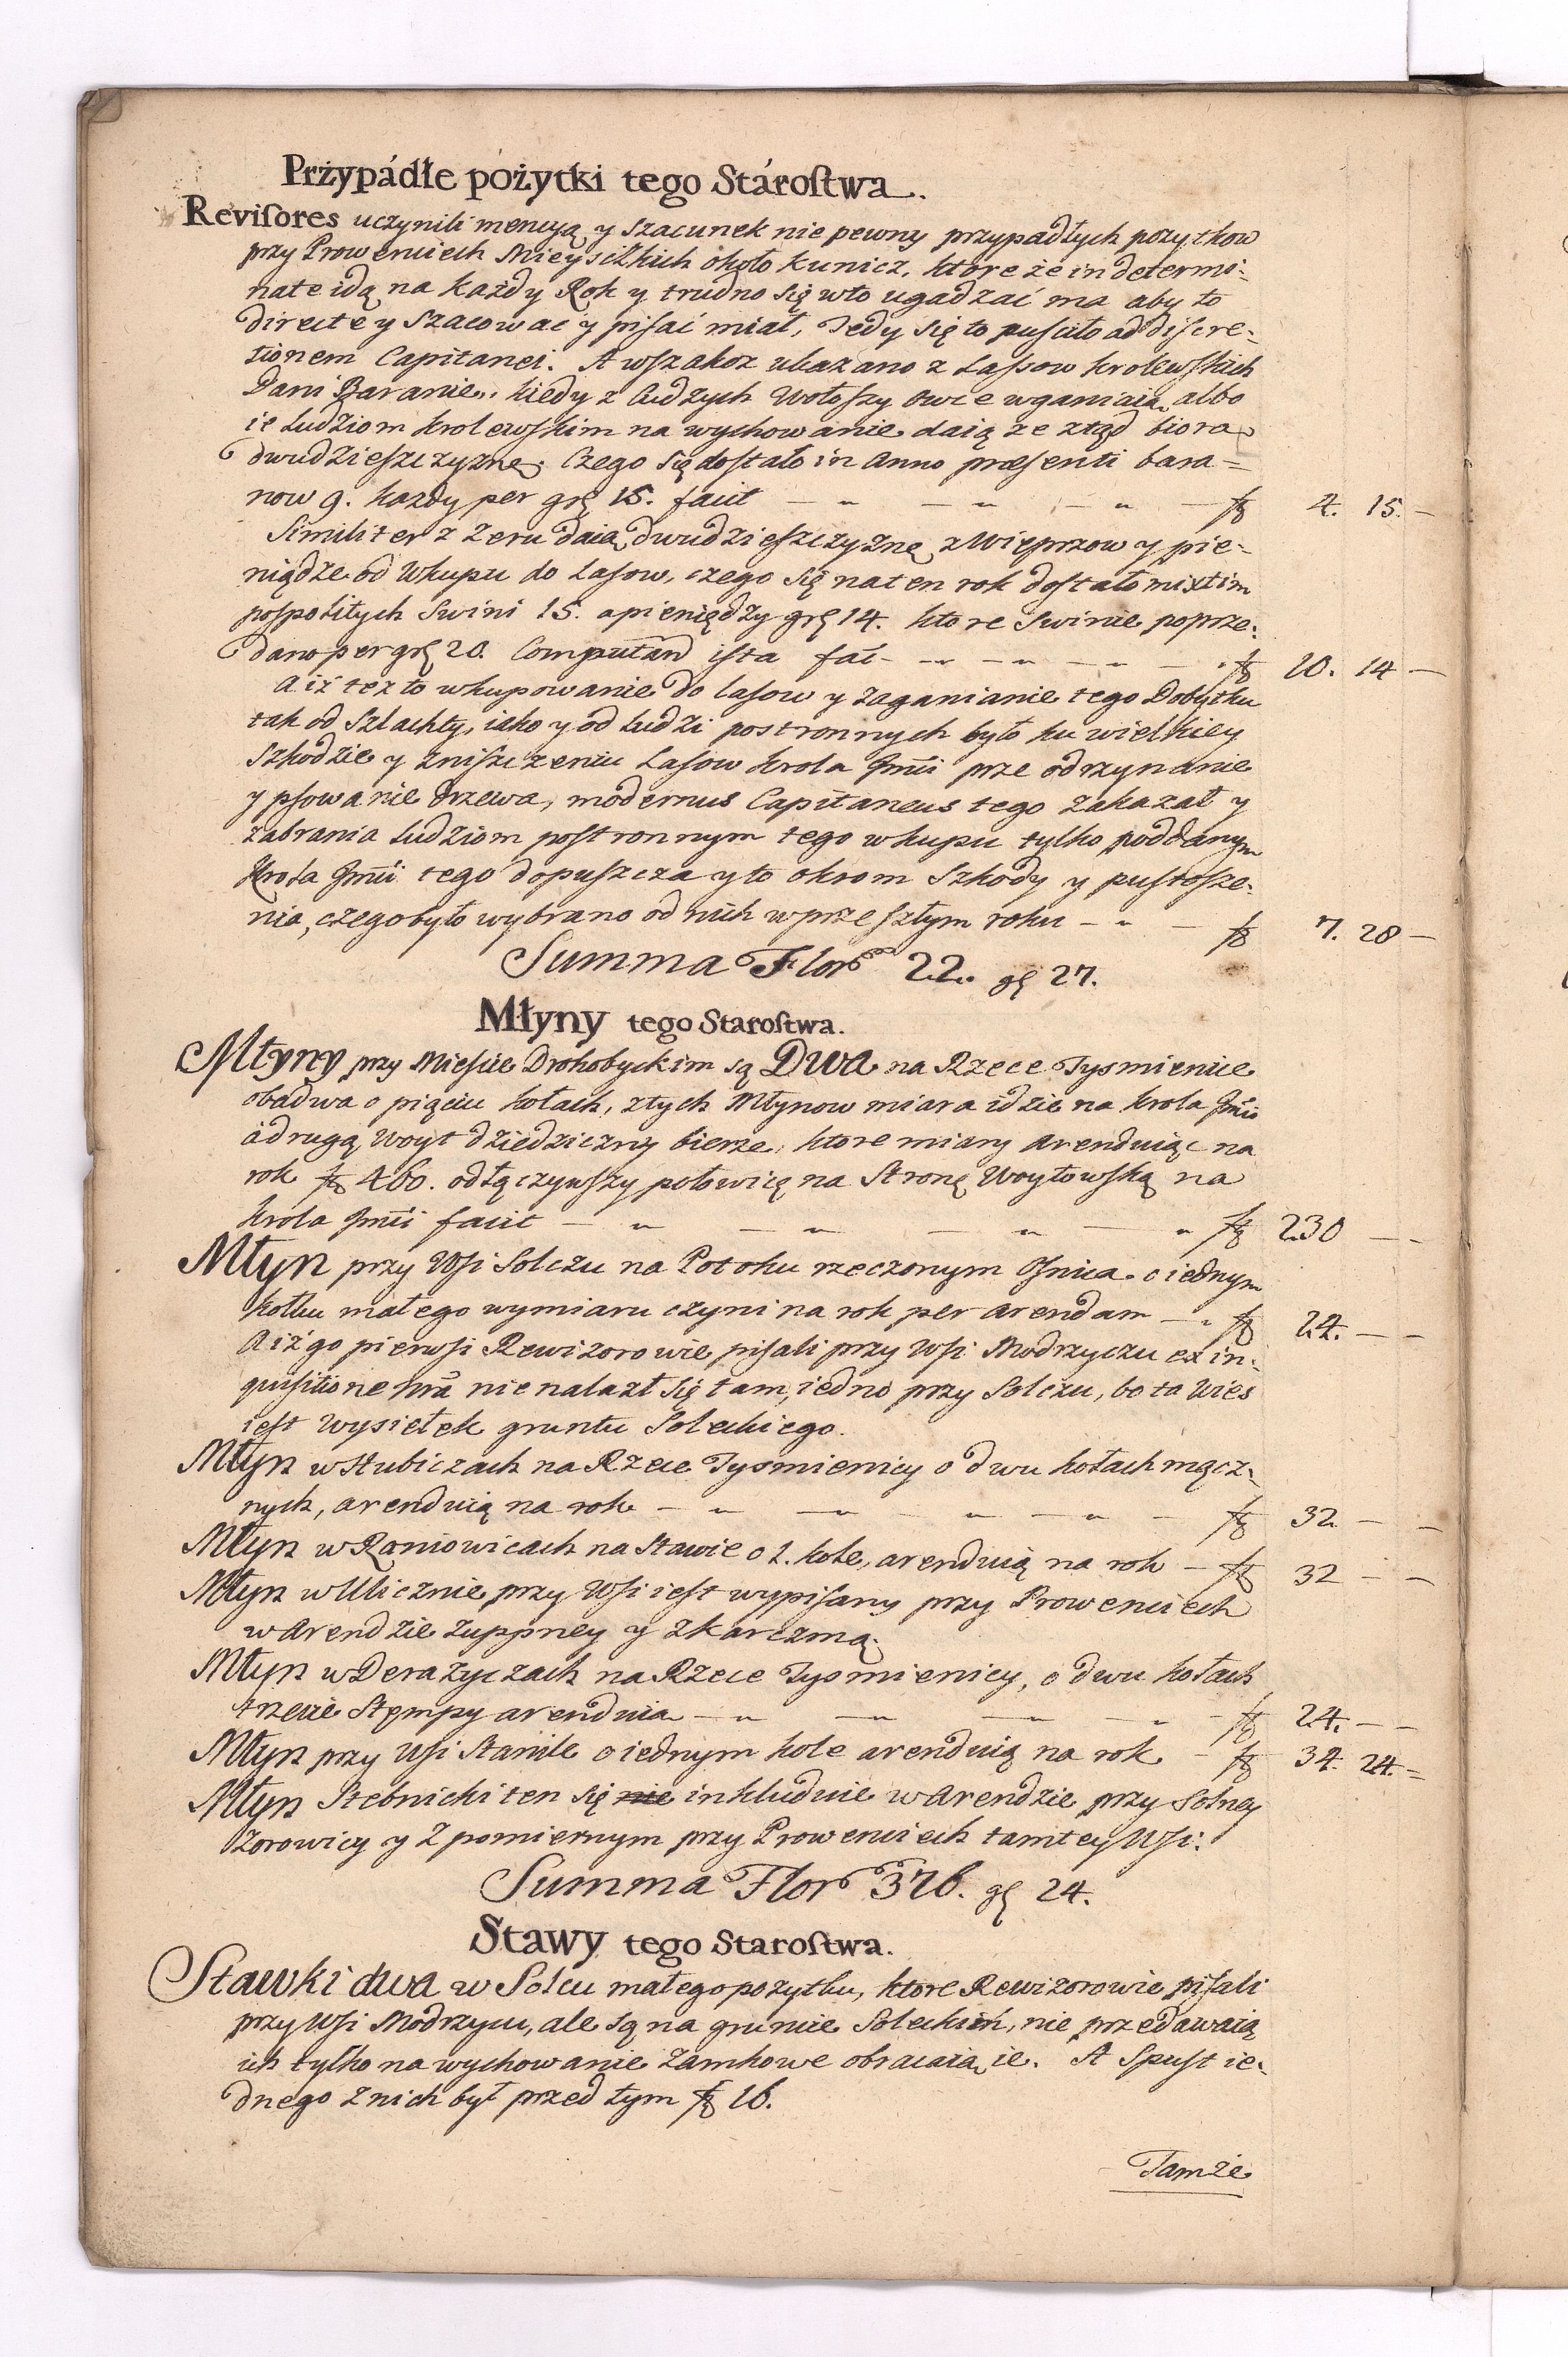 Przypádłe pożytki tego Stárostwa.
Revisores uczynili mencyą y szacunek nie pewny przypadłych pozytkow
przy Proweniech Mieysckich około Kunicz, ktore że in determi-
nate idą na każdy Rok y trudno się wto ugadzać ma aby to
directe y szacować y pisać miał, Tedy się to puściło ad discre-
tionem Capitanei. A wszakoz ukazano z Lassow Krolewskich
Dani Baranie, kiedy z Cudzych Wołoszy owce wganiaią, albo
ie Ludziom Krolewskim na wychowanie daią ze ztąd biorą
dwudziesczyznę. Czego się dostało in Anno præsenti bara=
now 9. każdy per gr 15. facit — „ — „ — „ — f 4. 15. —
Similiter z Zeru daią dwudziesczyznę z Wieprzow y pie-
niądze od Wkupu do Lasow, czego się na ten rok dostało mixtim
pospolitych Swini 15. a pieniędzy gr 14. ktore Swinie poprze-
dano per gr 20. Computand ista fac- „ — „ — „ — f 10. 14 —
A iż też to wkupowanie do lasow y zaganianie tego Dobytku
tak od Szlachty, iako y od Ludzi postronnych było ku wielkiey
Szkodzie y zniszczeniu Lasow Krola Jmci prze odrzynanie
y psowanie drzewa, modernus Capitaneus tego zakazał y
zabrania Ludziom postronnym tego wkupu tylko poddanym
Krola Jmci tego dopuszcza y to okrom Szkody y pustosze-
nia, czego było wybrano od nich w przeszłym roku — „ — f 7. 28 —
Summa Flor 22. gr 27.
Młyny tego Starostwa.
Młyny przy Mieście Drohobyckim są Dwa na Rzece Tysmienice
obadwa o pięciu kołach, z tych Młynow miara idzie na Krola Jmci
a drugą Woyt dziedziczny bierze, ktore miary arenduiąc na
rok f 460. odłączywszy połowicę na Stronę Woytowską na
Krola Jmci facit — „ — „ — „ — „ f 230 — -
Młyn przy Wsi Solczu na Potoku rzeczonym Osnica o iednym
kołku małego wymiaru czyni na rok per arendam — „ f 24. — —
A iż go pierwsi Rewizorowie pisali przy Wsi Modrzyczu ex in-
quisitione nrā nie nalazł się tam, iedno przy Solczu, bo ta Wies
iest Wysiełek gruntu Soleckiego.
Młyn w Hubiczach na Rzece Tysmienicy o dwu kołach mącz-
nych, arenduią na rok — „ — „ — „ — f 32 — —
Młyn w Raniowicach na Stawie o 1. kole, arenduią na rok — f 32 — —
Młyn w Ulicznie przy Wsi iest wypisany przy Proweniech
w Arendzie Zuppney y z Karczmą.
Młyn w Derażyczach na Rzece Tysmienicy, o dwu kołach
trzecie Stępmpy arenduia — „ — „ — „ — f 24. — —
Młyn przy Wsi Stanile o iednym kole arenduią na rok — f 34. 24. =
Młyn Stebnicki ten się nie inkluduie w Arendzie przy Solney
Zorowicy y z pomiernym przy Proweniech tamtey Wsi.
Summa Flor 376. gr 24.
Stawy tego Starostwa.
Stawki dwa w Solcu małego pozytku, ktore Rewizorowie pisali
przy Wsi Modrzycu, ale są na gruncie Soleckim, nie przedawaią
ich tylko na wychowanie zamkowe obracaią ie. A Spust ie-
dnego z nich był przed tym f 16.
Tamże